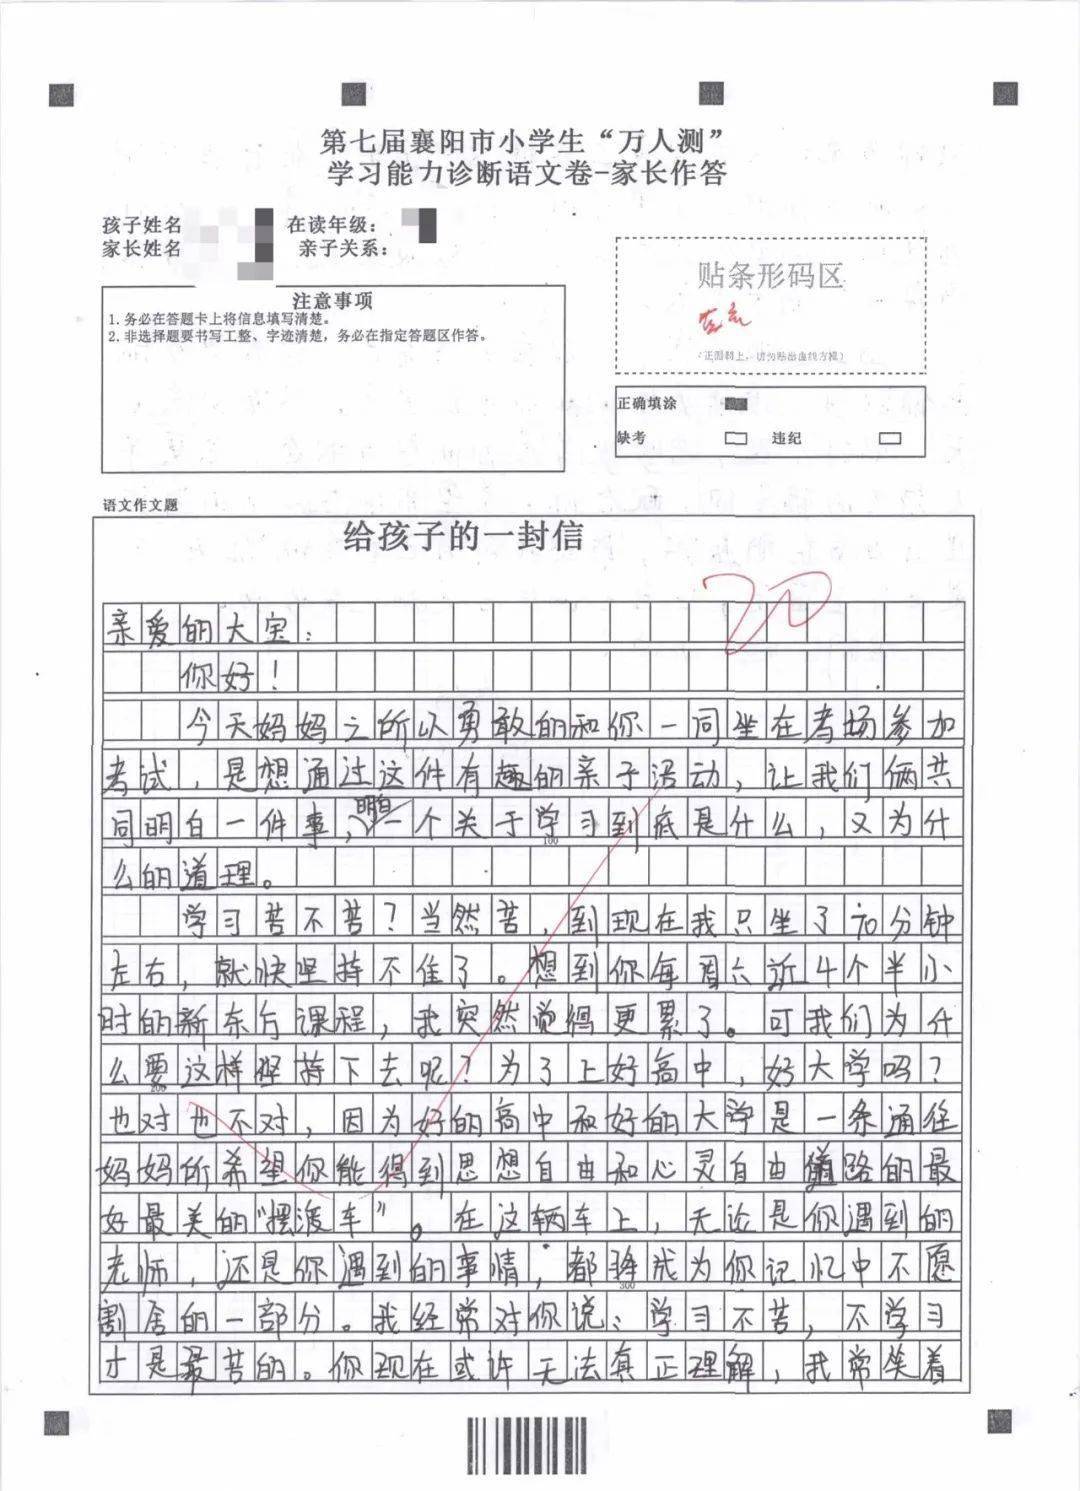 第七届襄阳市小学生“万人测”
学习能力诊断语文卷-家长作答
孩子姓名 在读年级：
家长姓名 亲子关系：
注意事项
1. 务必在答题卡上将信息填写清楚。
2. 非选择题要书写工整、字迹清楚，务必在指定答题区作答。
贴条形码区
（正面朝上，切勿贴出虚线方框）
正确填涂
缺考 违纪
语文作文题
给孩子的一封信
20
亲爱的大宝：
你好！
今天妈妈之所以勇敢的和你一同坐在考场参加
考试，是想通过这件有趣的亲子活动，让我们俩共
同明白一件事，明白一个关于学习到底是什么，又为什
100
么的道理。
学习苦不苦？当然苦，到现在我只坐了70分钟
左右，就快坚持不住了。想到你每周六近4个半小
时的新东方课程，我突然觉得更累了。可我们为什
么要这样坚持下去呢？为了上好高中，好大学吗？
200
也对也不对，因为好的高中和好的大学是一条通往
妈妈所希望你能得到思想自由和心灵自由道路的最
好最美的“摆渡车”。在这辆车上，无论是你遇到的
老师，还是你遇到的事情，都将成为你记忆中不愿
300
割舍的一部分。我经常对你说：学习不苦，不学习
才是最苦的。你现在或许无法真正理解，我常笑着